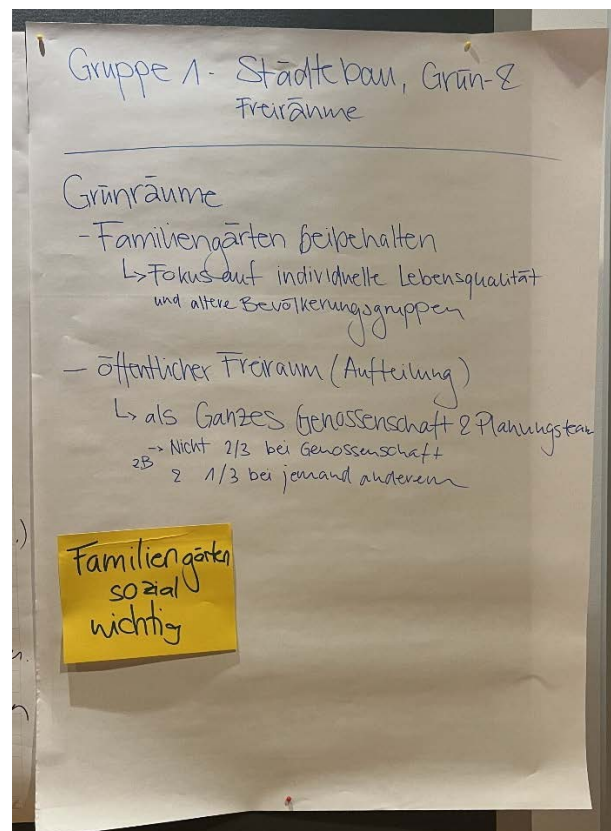 Gruppe 1 - Städtebau, Grün- &
Freiräume
Grünräume
- Familiengärten beibehalten
↳ Fokus auf individuelle Lebensqualität
und altere Bevölkerungsgruppen
- öffentlicher Freiraum (Aufteilung)
↳ als Ganzes Genossenschaft & Planungsteam
zB → Nicht 2/3 bei Genossenschaft
& 1/3 bei jemand anderem
Familiengärten
sozial
wichtig
.)
n.